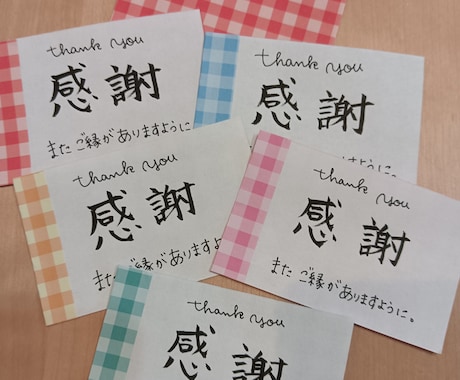 thank you
感謝
また ご縁がありますように。
thank you
感謝
ように。
thank you
感謝
また ご縁がありますよう
thank you
感謝
また ご縁がありますように。
thank you
感謝